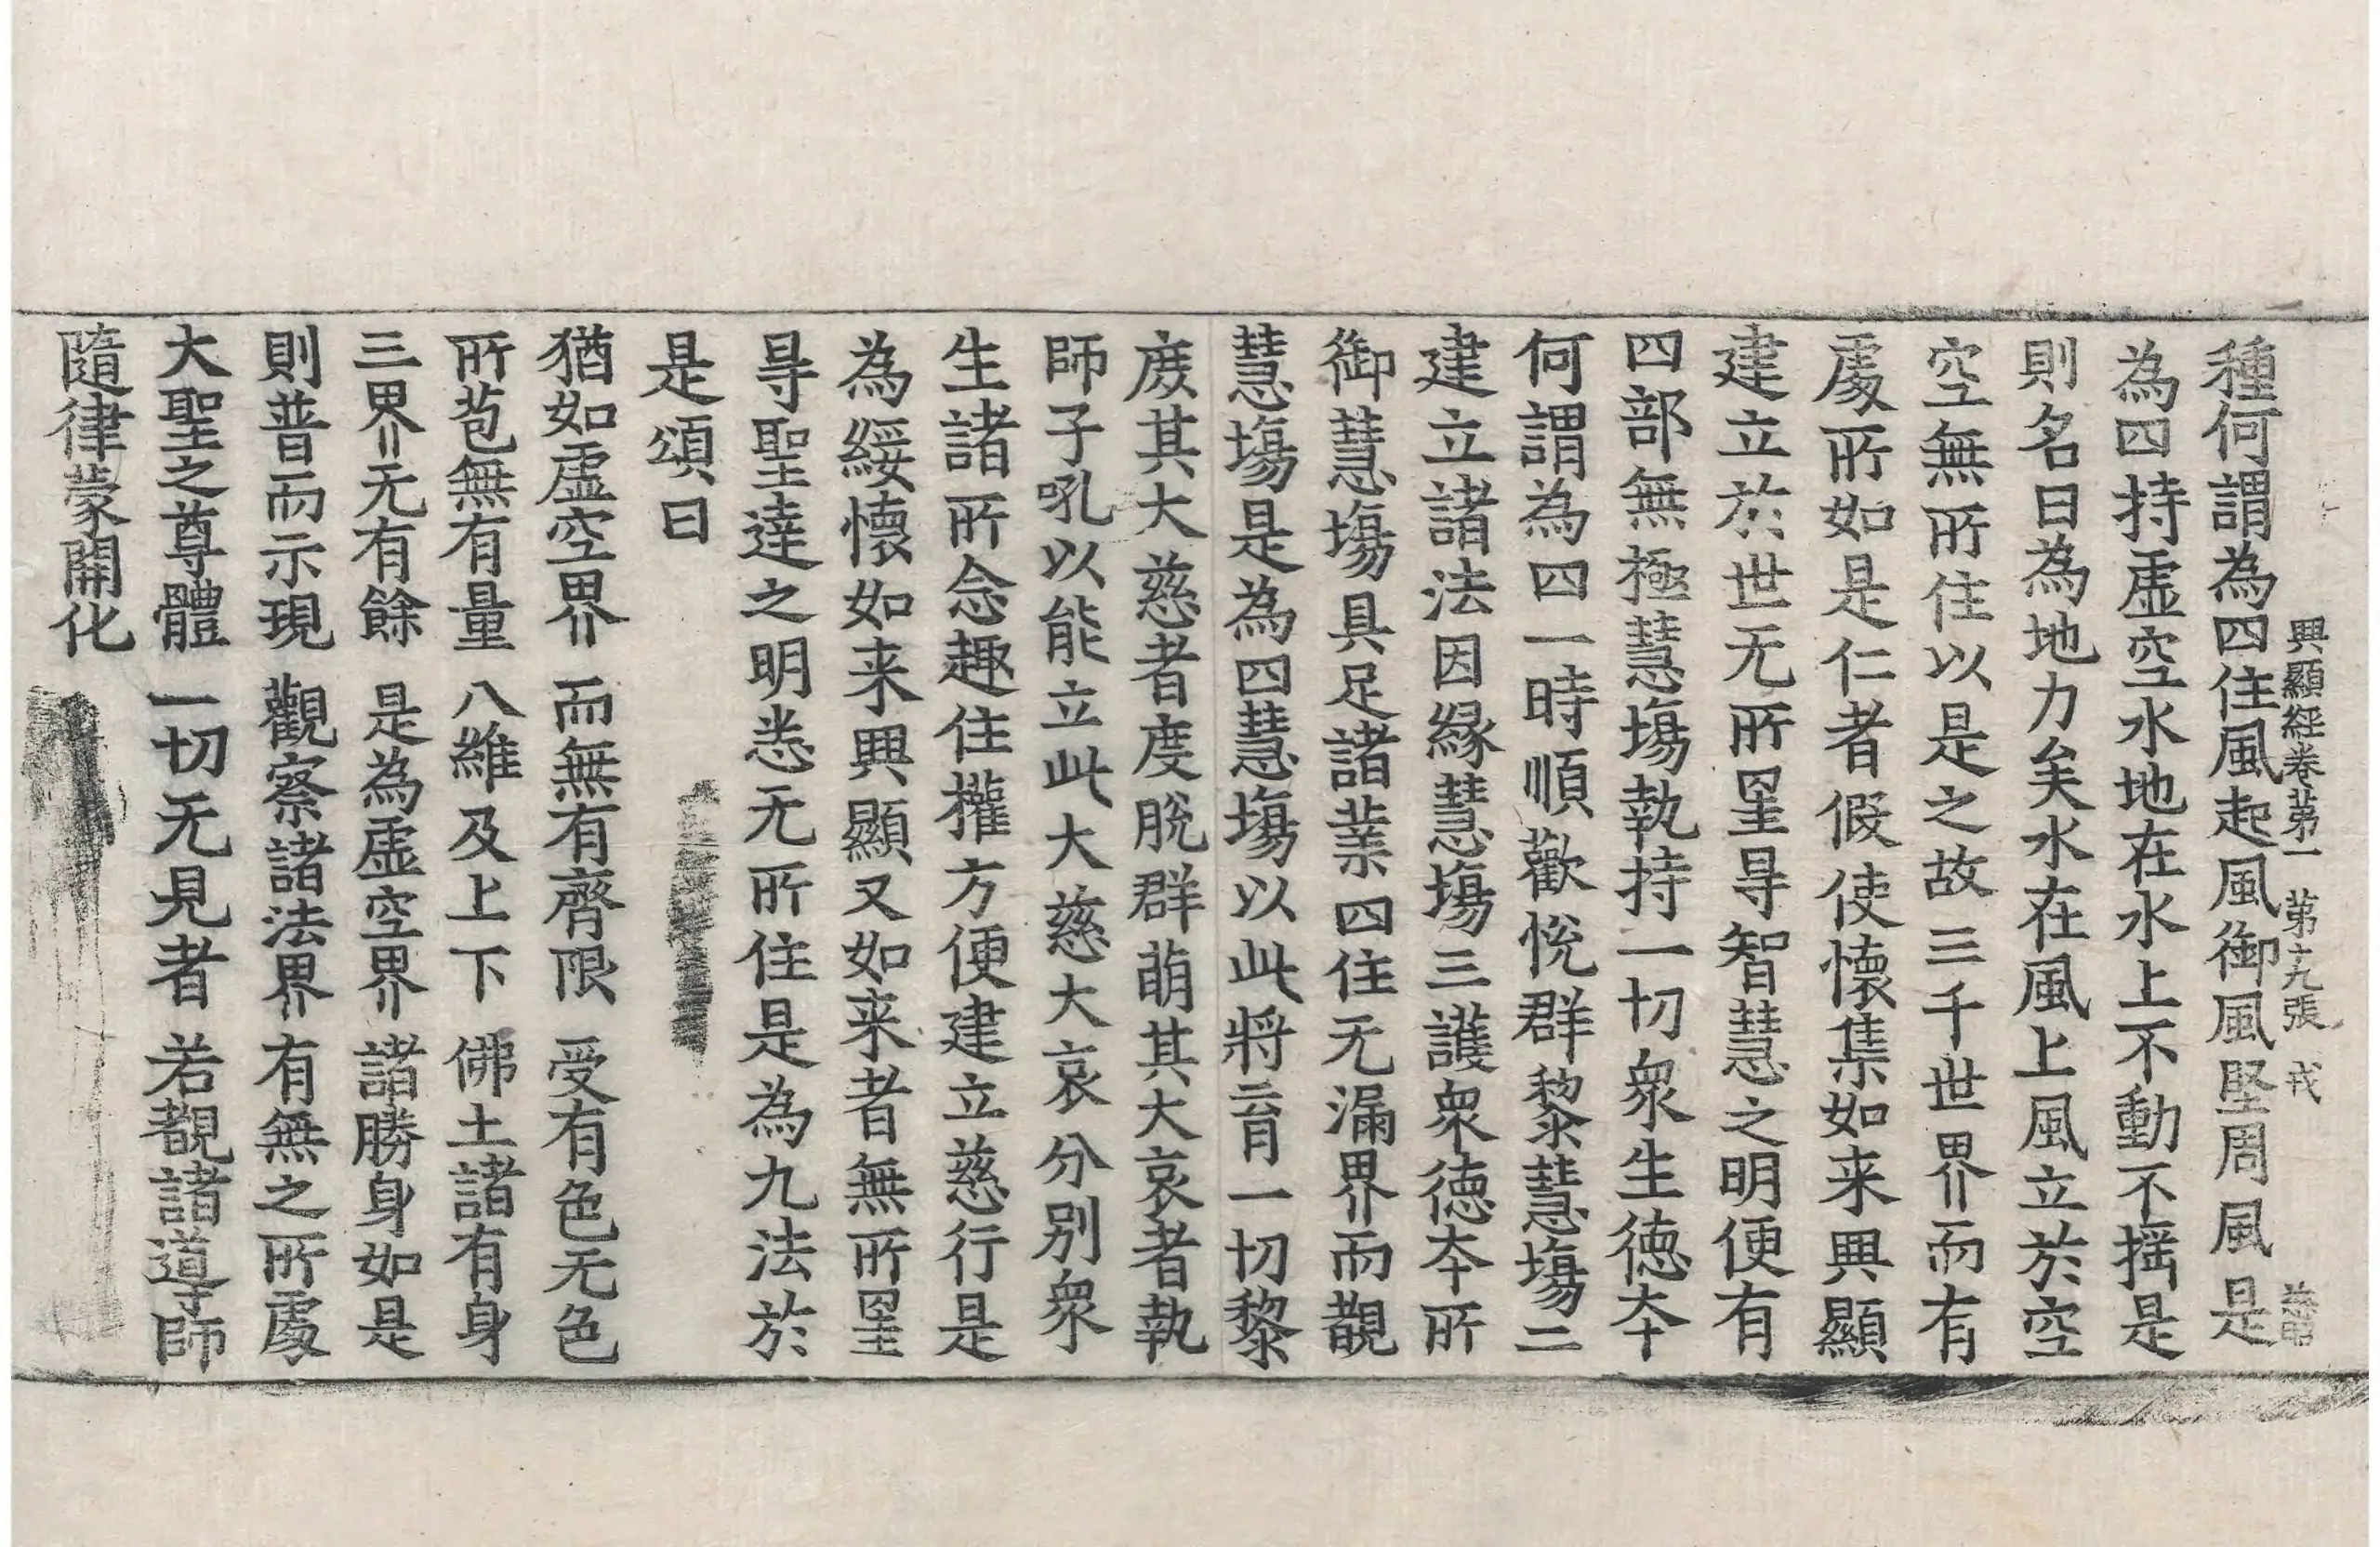 興顯經卷第一　第十九張　戎
種何謂為四住風起風御風堅周風是
為四持虛空水地在水上不動不揺是
則名曰為地力矣水在風上風立於空
空無所住以是之故三千世界而有
處所如是仁者假使懷集如来興顯
建立於世无所罣㝵智慧之明便有
四部無極慧塲執持一切衆生徳夲
何謂為四一時順歡悅群黎慧塲二
建立諸法因縁慧塲三護衆徳夲所
御慧塲具足諸業四住无漏界而覩
慧塲是為四慧塲以此將育一切黎
庻其大慈者度脫群萌其大哀者執
師子吼以能立此大慈大哀分別衆
生諸所念趣住權方便建立慈行是
為綏懷如来興顯又如来者無所罣
㝵聖達之明悉无所住是為九法於
是頌曰
猶如虛空界　而無有齊限　受有色无色
所苞無有量　八維及上下　佛土諸有身
三界无有餘　是為虛空界　諸勝身如是
則普而示現　觀察諸法界　有無之所處
大聖之尊體　一切无見者　若覩諸導師
隨律蒙開化